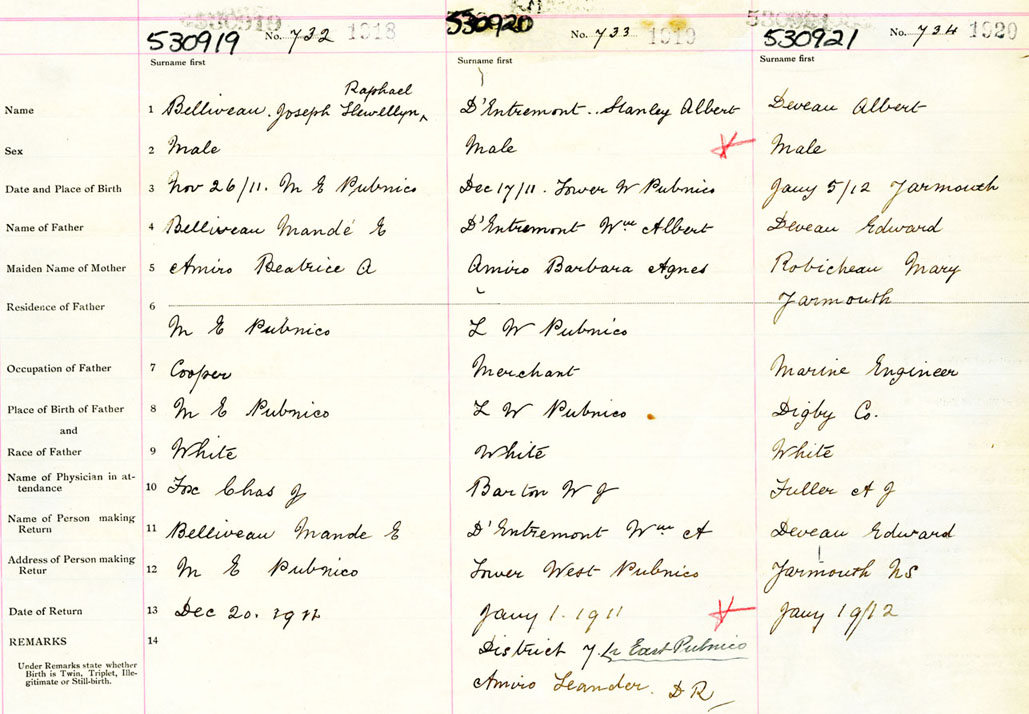 530919 No. 732 1918 530920 No. 733 1919 530921 No. 734 1920
Surname first Surname first Surname first
Raphael
Name 1 Belliveau Joseph Llewellyn D'Entremont Stanley Albert Deveau Albert
Sex 2 Male Male Male
Date and Place of Birth 3 Nov 26/11. M E Pubnico Dec 17/11. Lower W Pubnico Jany 5/12 Yarmouth
Name of Father 4 Belliveau Mandé E D'Entremont Wm Albert Deveau Edward
Maiden Name of Mother 5 Amiro Beatrice A Amiro Barbara Agnes Robicheau Mary
Residence of Father 6 Yarmouth
M E Pubnico L W Pubnico
Occupation of Father 7 Cooper Merchant Marine Engineer
Place of Birth of Father 8 M E Pubnico L W Pubnico Digby Co.
and
Race of Father 9 White White White
Name of Physician in at-
tendance 10 Fox Chas J Barton W J Fuller A J
Name of Person making
Return 11 Belliveau Mande E D'Entremont Wm A Deveau Edward
Address of Person making
Retur 12 M E Pubnico Lower West Pubnico Yarmouth NS
Date of Return 13 Dec 20. Jany 1. 1911 Jany 1912
REMARKS 14 District 7. East Pubnico
Under Remarks state whether
Birth is Twin, Triplet, Ille-
gitimate or Still-birth.
Amiro Leander. D R